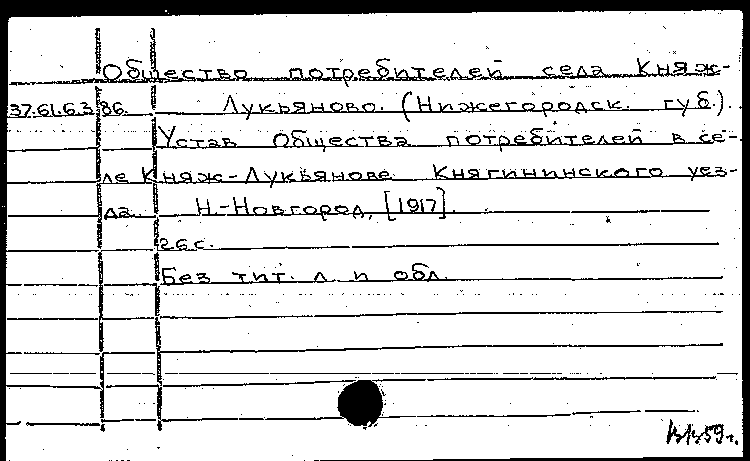 Общество потребителей села Княж-
37.61.6.3.86. Лукьяново. (Нижегородск. губ.).
Устав Общества потребителей в се-
ле Княж-Лукьянове Княгининского уез-
да. Н.-Новгород, [1917].
26 с.
Без тит. л. и обл.
59 г.